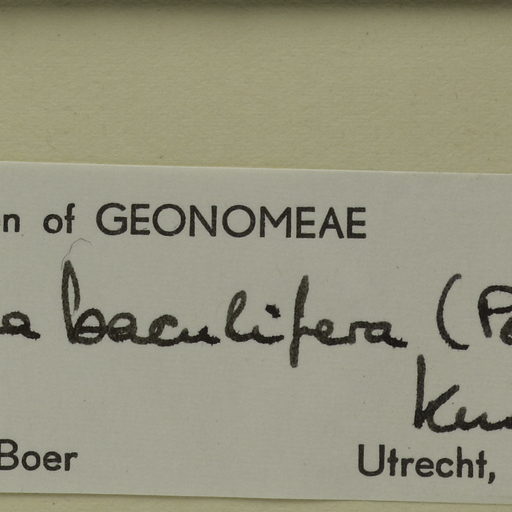 n of GEONOMEAE
a baculifera (Po
Kun
Boer Utrecht,